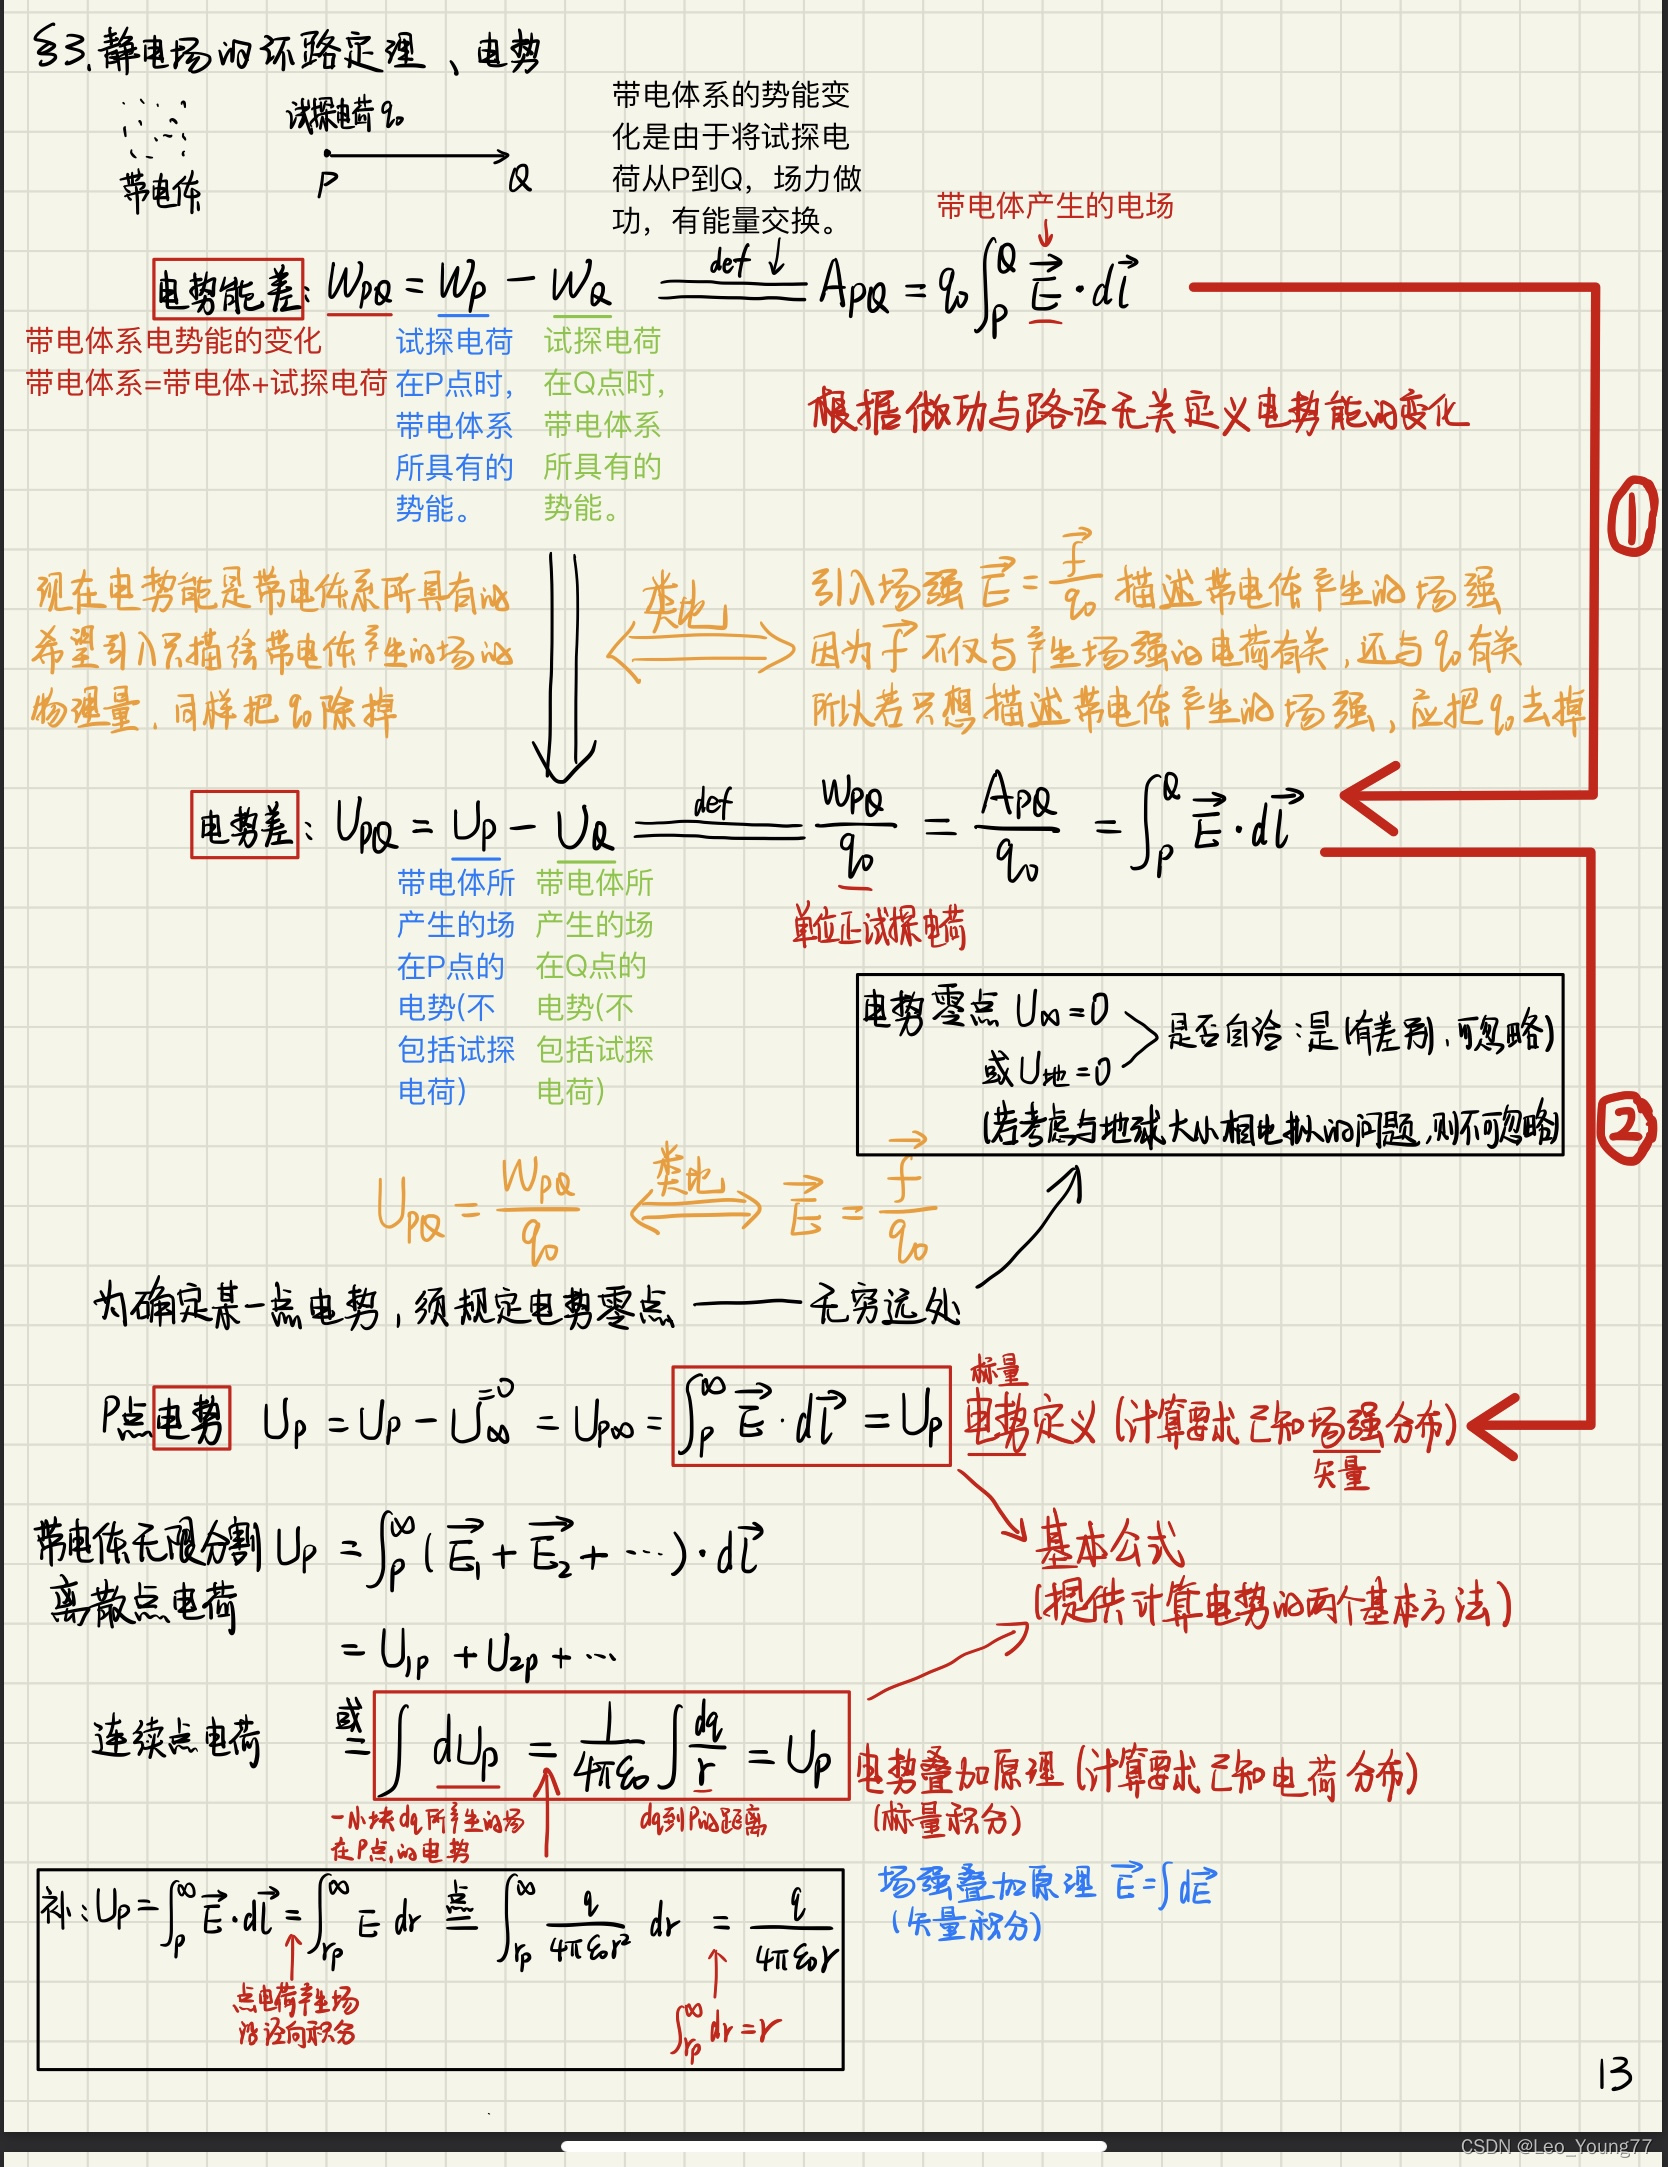 §3.静电场的环路定理、电势
试探电荷 q₀
带电体
P
Q
带电体系的势能变
化是由于将试探电
荷从P到Q，场力做
功，有能量交换。
带电体产生的电场
电势能差: W_PQ = W_P - W_Q def A_PQ = q₀∫_P^Q E⃗·dl⃗
带电体系电势能的变化
带电体系=带电体+试探电荷
试探电荷
在P点时，
带电体系
所具有的
势能。
试探电荷
在Q点时，
带电体系
所具有的
势能。
根据做功与路径无关定义电势能的变化
①
现在电势能是带电体系所具有的
希望引入只描绘带电体产生的场的
物理量，同样把q₀除掉
类地
引入场强 E⃗ = f⃗/q₀ 描述带电体产生的场强
因为f⃗不仅与产生场强的电荷有关,还与q₀有关
所以若只想描述带电体产生的场强,应把q₀去掉
电势差: U_PQ = U_P - U_Q def W_PQ/q₀ = A_PQ/q₀ = ∫_P^Q E⃗·dl⃗
单位正试探电荷
带电体所
产生的场
在P点的
电势(不
包括试探
电荷)
带电体所
产生的场
在Q点的
电势(不
包括试探
电荷)
电势零点 U_∞=0
或U_地=0
是否自洽:是(有差别,可忽略)
(若考虑与地球大小相比拟的问题,则不可忽略)
②
U_PQ = W_PQ/q₀ 类地 E⃗ = f⃗/q₀
为确定某一点电势,须规定电势零点——无穷远处
P点电势 U_P = U_P - U_∞ = U_P∞ = ∫_P^∞ E⃗·dl⃗ = U_P 电势定义(计算要求已知场强分布)
=0
标量
矢量
带电体无限分割 U_P = ∫_P^∞ (E⃗₁+E⃗₂+…)·dl⃗
离散点电荷
= U_1P + U_2P + …
基本公式
(提供计算电势的两个基本方法)
连续点电荷 或 = ∫dU_P = 1/4πε₀ ∫dq/r = U_P 电势叠加原理(计算要求已知电荷分布)
(标量积分)
一小块dq所产生的场
在P点的电势
dq到P的距离
场强叠加原理 E⃗=∫dE⃗
(矢量积分)
补: U_P = ∫_P^∞ E⃗·dl⃗ = ∫_{r_P}^∞ E dr 点= ∫_{r_P}^∞ q/4πε₀r² dr = q/4πε₀r
点电荷产生场
沿径向积分
∫_{r_P}^∞ dr = r
13
CSDN @Leo_Young77